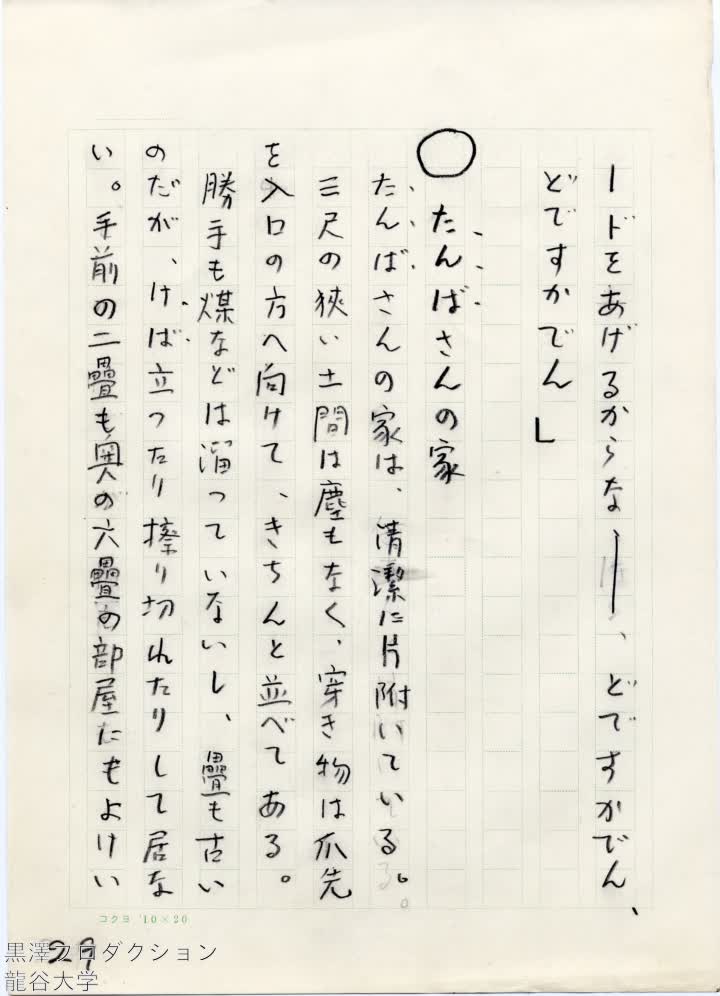 ードをあげるからなー、どですかでん、
どですかでん」
○たんばさんの家
たんばさんの家は、清潔に片附いている。
三尺の狭い土間は塵もなく、穿き物は爪先
を入口の方へ向けて、きちんと並べてある。
勝手も煤などは溜っていないし、疊も古い
のだが、けば立ったり擦り切れたりして居な
い。手前の二疊も奥の六疊の部屋にもよけい
コクヨ 10×20
29
黒澤プロダクション
龍谷大学